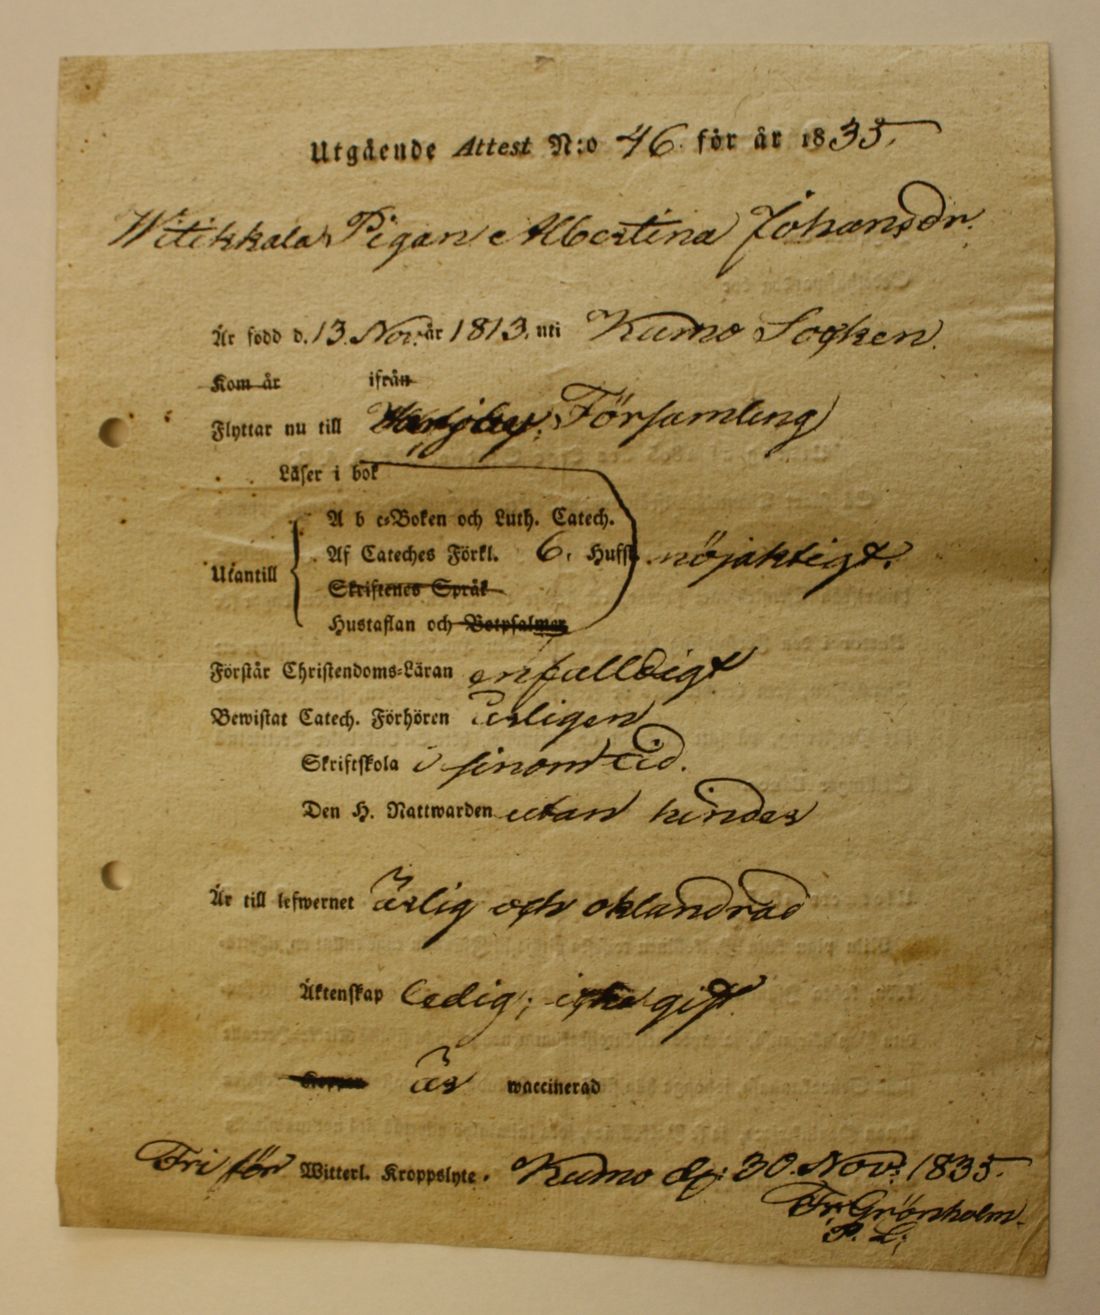 Utgående Attest N:o 46. för år 1835.
Witikkala Pigan Albertina Johansdr.
Är född d. 13. Nov. år 1813. uti Kumo Socken.
Kom år ifrån
Flyttar nu till Församling
Läser i bok
A b c-Boken och Luth. Catech.
Utantill Af Cateches Förkl. 6. Hufst. nöjaktigt.
Skriftenes Språk
Hustaflan och Botpsalmar
Förstår Christendoms-Läran enfalldigt
Bewistat Catech. Förhören årligen
Skriftskola i sinom tid.
Den H. Nattwarden utan hinder
Är till lefwernet ärlig och oklandrad
Äktenskap ledig; icke gift.
Koppor är waccinerad
Fri för Witterl. Kroppslyte. Kumo d. 30. Nov. 1835.
Fr. Grönholm.
P. L.